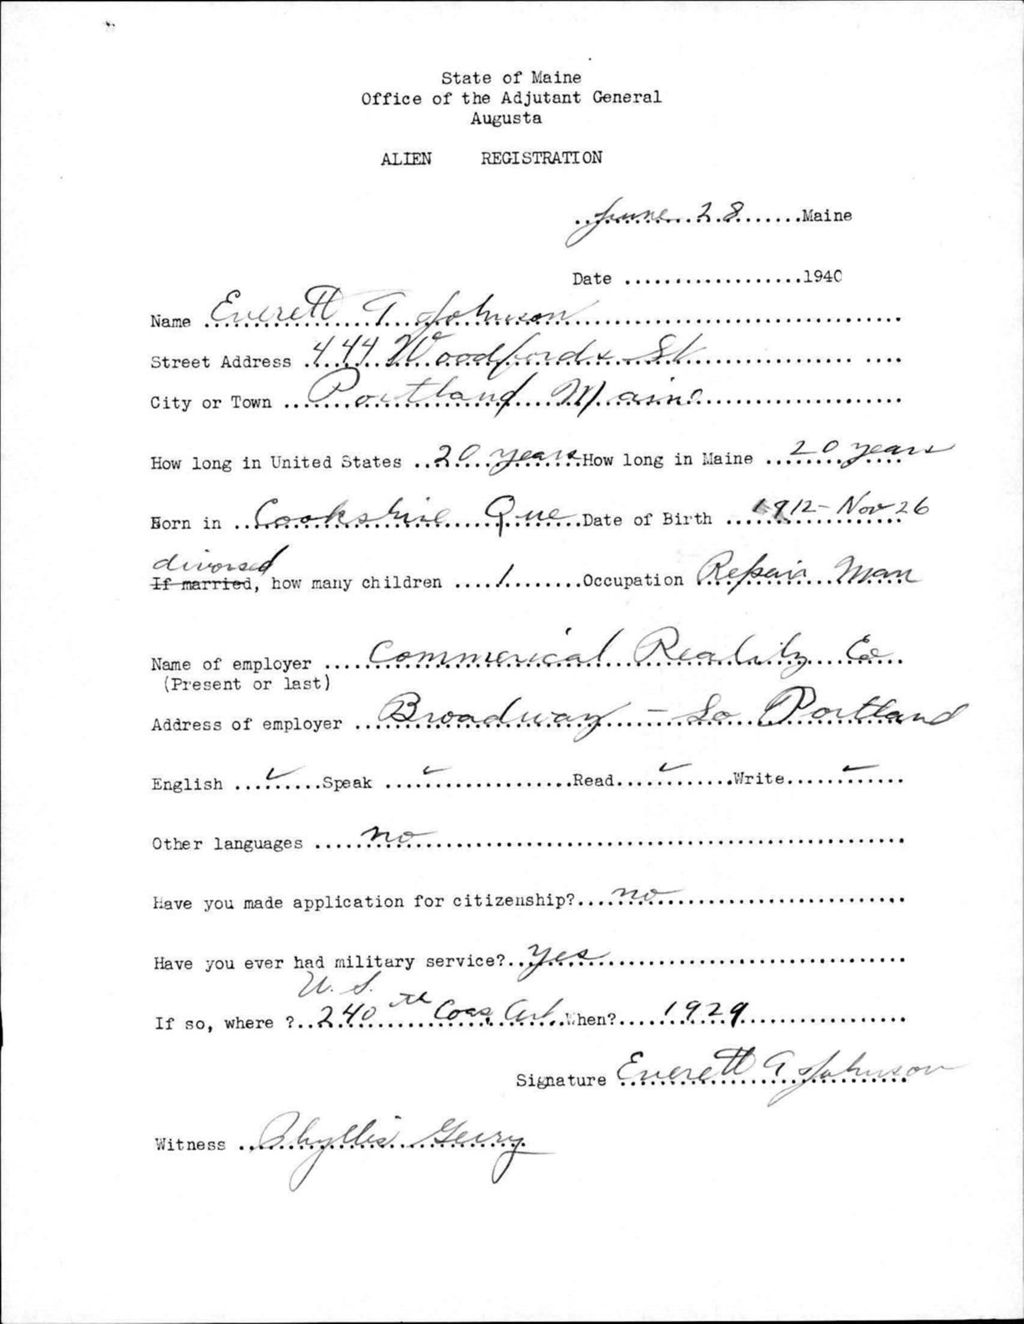 State of Maine
Office of the Adjutant General
Augusta
ALIEN REGISTRATION
June 28 Maine
Date ..................1940
Name Everett G Johnson
Street Address 444 Woodfords St
City or Town Portland Maine
How long in United States 20 years How long in Maine 20 years
Born in Cookshire Que Date of Birth 1912-Nov 26
divorsed
If married, how many children 1 Occupation Repair Man
Name of employer Commerical Reality Co
(Present or last)
Address of employer Broadway - So Portland
English ✓ Speak ✓ Read ✓ Write ✓
Other languages no
Have you made application for citizenship? no
Have you ever had military service? yes
U.S.
If so, where ? 240th Coas Art When? 1929
Signature Everett G Johnson
Witness Phyllis Geiry